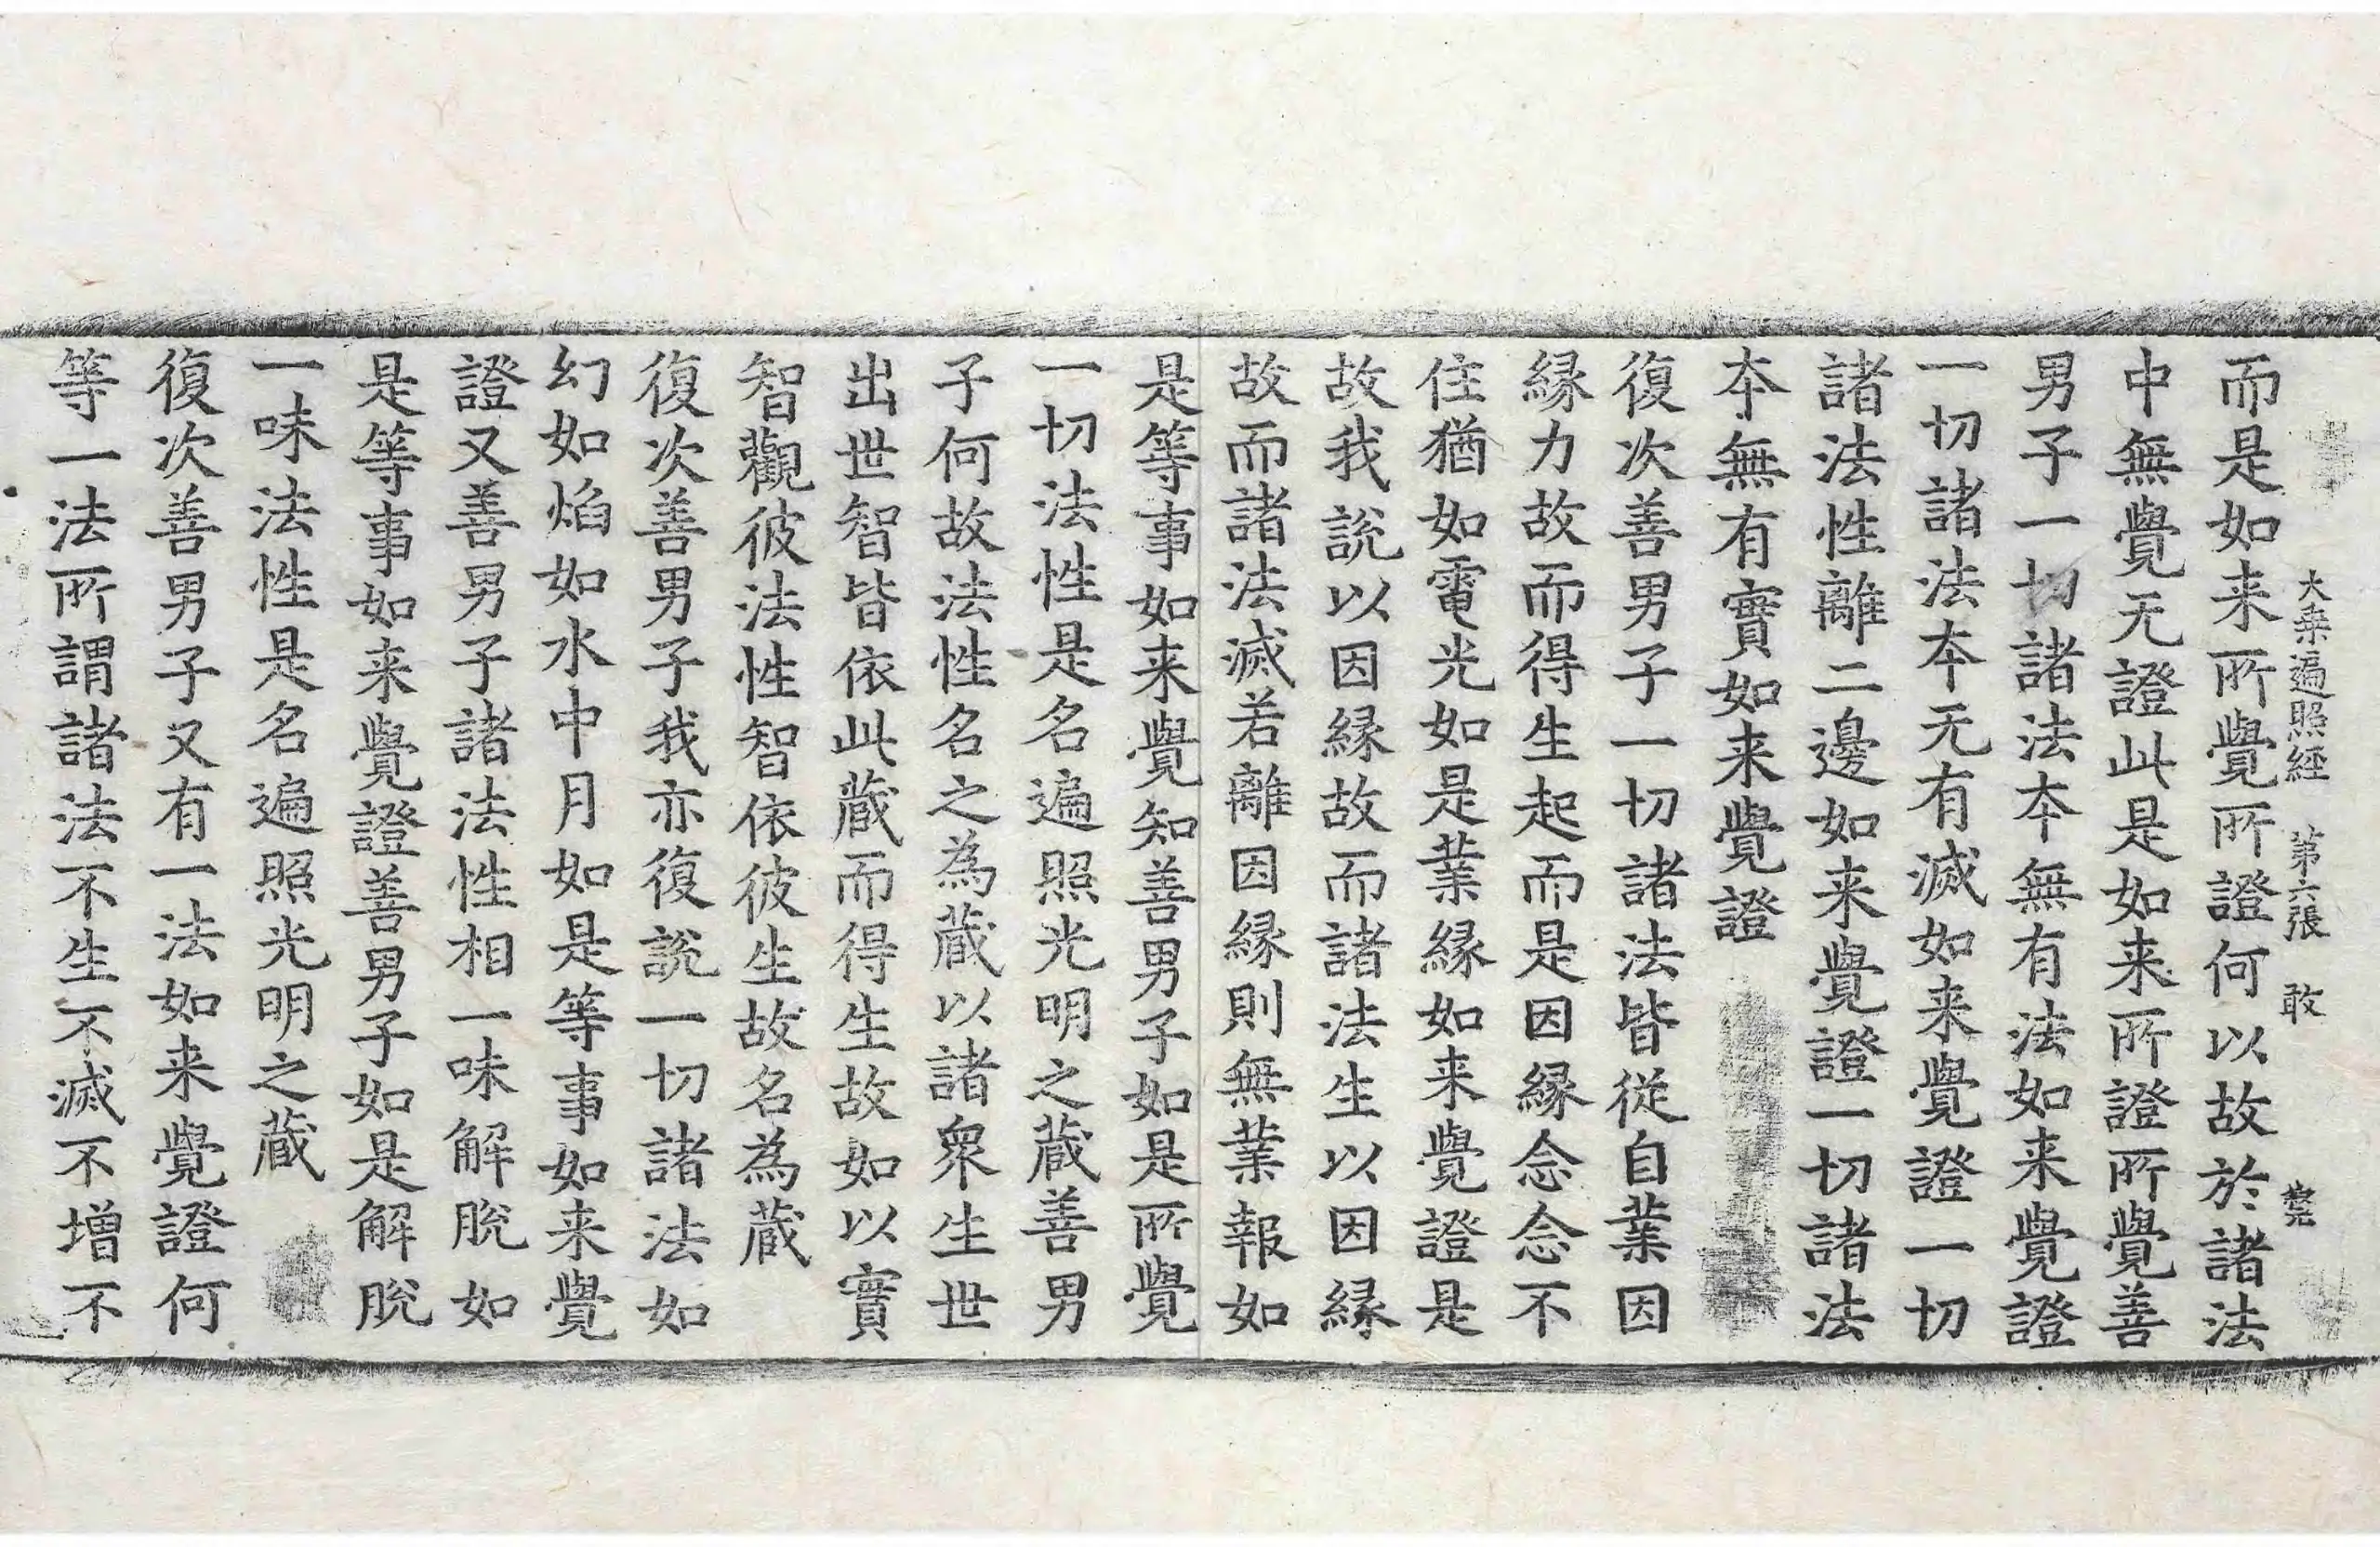 大乗遍照経 第六張 敢
而是如来所覺所證何以故於諸法
中無覺无證此是如来所證所覺善
男子一切諸法本無有法如来覺證
一切諸法本无有滅如来覺證一切
諸法性離二邊如来覺證一切諸法
本無有實如来覺證
復次善男子一切諸法皆從自業因
縁力故而得生起而是因縁念念不
住猶如電光如是業縁如来覺證是
故我説以因縁故而諸法生以因縁
故而諸法滅若離因縁則無業報如
是等事如来覺知善男子如是所覺
一切法性是名遍照光明之蔵善男
子何故法性名之為蔵以諸衆生世
出世智皆依此蔵而得生故如以實
智觀彼法性智依彼生故名為蔵
復次善男子我亦復説一切諸法如
幻如焰如水中月如是等事如来覺
證又善男子諸法性相一味解脱如
是等事如来覺證善男子如是解脱
一味法性是名遍照光明之蔵
復次善男子又有一法如来覺證何
等一法所謂諸法不生不滅不增不